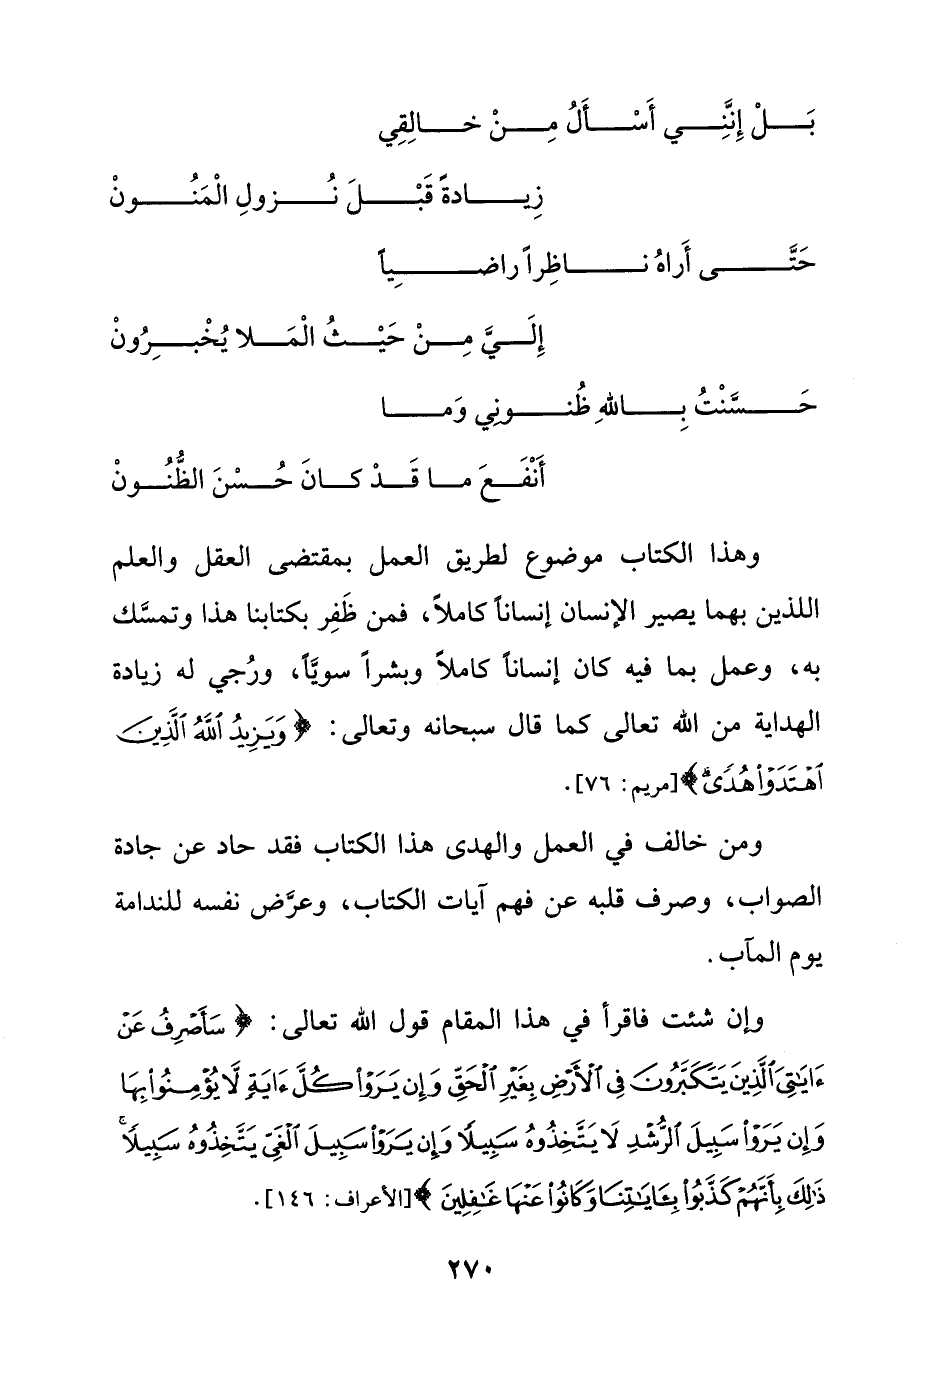 بَلْ إِنَّنِي أَسْأَلُ مِنْ خالِقِي
زِيادةً قَبْلَ نُزولِ الْمَنُونْ
حَتَّى أَراهُ ناظِراً راضِياً
إِلَيَّ مِنْ حَيْثُ الْمَلا يُخْبِرُونْ
حَسَّنْتُ بِاللهِ ظُنونِي وَما
أَنْفَعَ ما قَدْ كانَ حُسْنَ الظُّنُونْ
وهذا الكتاب موضوع لطريق العمل بمقتضى العقل والعلم
اللذين بهما يصير الإنسان إنساناً كاملاً، فمن ظَفِر بكتابنا هذا وتمسَّك
به، وعمل بما فيه كان إنساناً كاملاً وبشراً سويَّاً، ورُجي له زيادة
الهداية من الله تعالى كما قال سبحانه وتعالى: ﴿وَيَزِيدُ ٱللَّهُ ٱلَّذِينَ
ٱهْتَدَوْا۟ هُدًى﴾ [مريم: ٧٦].
ومن خالف في العمل والهدى هذا الكتاب فقد حاد عن جادة
الصواب، وصرف قلبه عن فهم آيات الكتاب، وعرَّض نفسه للندامة
يوم المآب.
وإن شئت فاقرأ في هذا المقام قول الله تعالى: ﴿سَأَصْرِفُ عَنْ
ءَايَٰتِىَ ٱلَّذِينَ يَتَكَبَّرُونَ فِى ٱلْأَرْضِ بِغَيْرِ ٱلْحَقِّ وَإِن يَرَوْا۟ كُلَّ ءَايَةٍ لَّا يُؤْمِنُوا۟ بِهَا
وَإِن يَرَوْا۟ سَبِيلَ ٱلرُّشْدِ لَا يَتَّخِذُوهُ سَبِيلًا وَإِن يَرَوْا۟ سَبِيلَ ٱلْغَىِّ يَتَّخِذُوهُ سَبِيلًاۚ
ذَٰلِكَ بِأَنَّهُمْ كَذَّبُوا۟ بِـَٔايَٰتِنَا وَكَانُوا۟ عَنْهَا غَٰفِلِينَ﴾ [الأعراف: ١٤٦].
٢٧٠